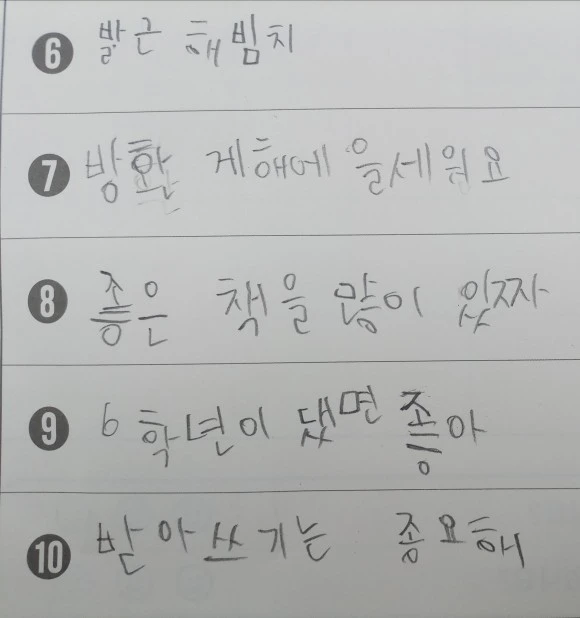 6 발근 해빔치
7 방확 게해에 을세워요
8 좋은 책을 많이 있짜
9 6학년이 댔면 좋아
10 받아쓰기는 종요해